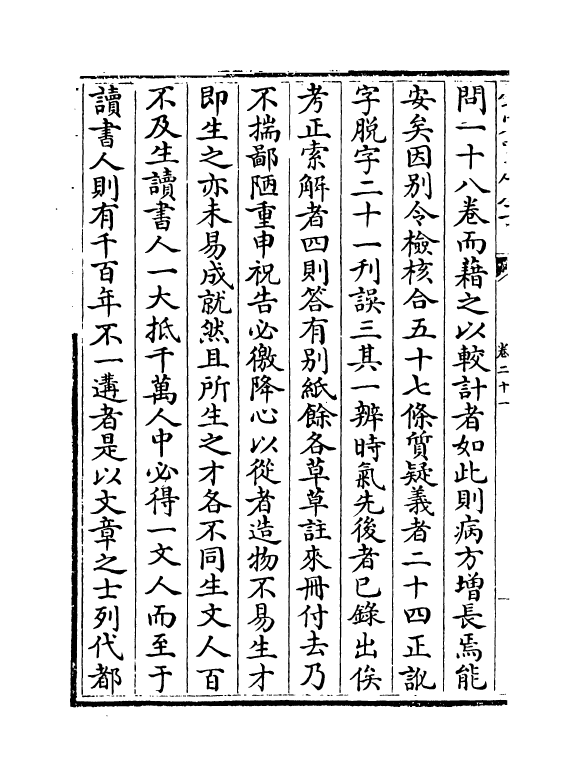 卷二十一
問一十八卷而藉之以較計者如此則病方增長焉能
安矣因别令檢核合五十七條質疑義者二十四正訛
字脱字二十一刋誤三其一辨時氣先後者已錄出俟
考正索解者四則答有别紙餘各草草註來冊付去乃
不揣鄙陋重申祝告必徼降心以從者造物不易生才
即生之亦未易成就然且所生之才各不同生文人百
不及生讀書人一大抵千萬人中必得一文人而至于
讀書人則有千百年不一遘者是以文章之士列代都